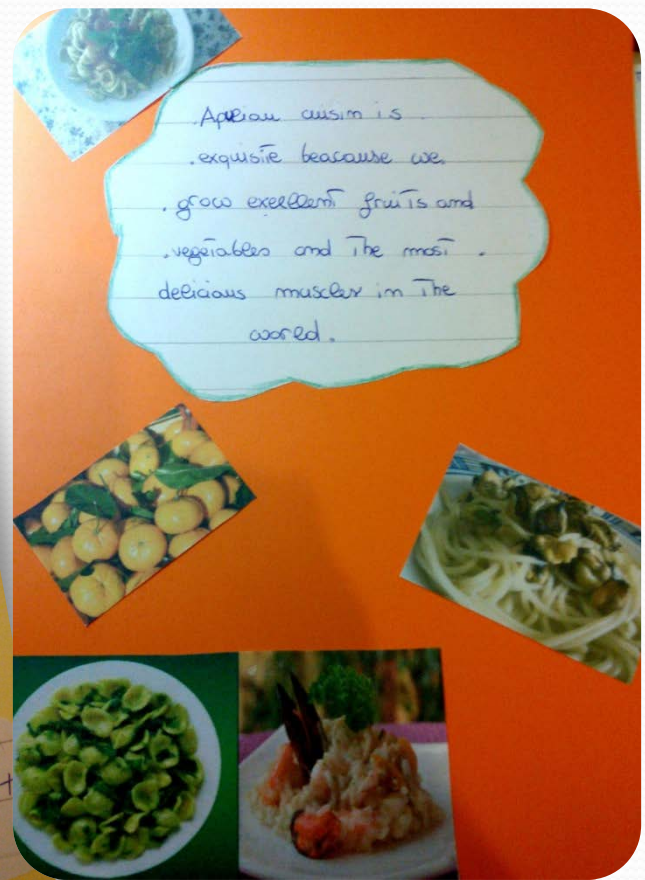 Apulian cuisin is
exquisite beacause we
grow exellent fruits and
vegetables and the most
delicious muscles in the
world.